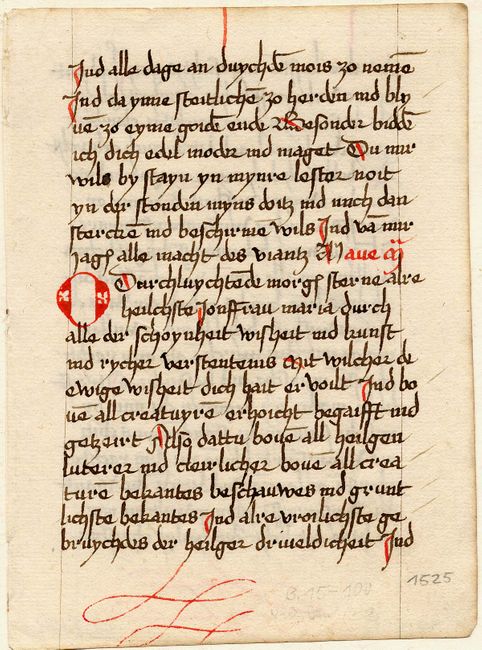 Jnd alle dage an duychdē mois zo nemē
Jnd da ynne steitlichē zo herden ind bly
uē zo eyme goidē ende Besonder biddē
ich dich edel moder ind maget Du mir
wils by stayn yn mynre lester noit
yn der stonden myns doitz ind mich dan
sterckē ind beschirmē wils Jnd vā mir
jagē alle macht des viantz A aue mā
O Durchluychtēde morgē sterne alre
heilchste Jonffrau maria durch
alle der schoynheit wisheit ind kunst
ind rycher verstentenis Mit wilcher de
ewige wisheit dich hait ervoilt Jnd bo
uē all creatuyrē erhoicht begaifft ind
getzeirt Also dattu bouē all heilgen
luterer ind cleirlicher bouē all crea
turē bekantes beschauwes ind grunt
lichste bekantes Jnd alre vroilichste ge
bruychdes der heilger driueldicheit Jnd
1525